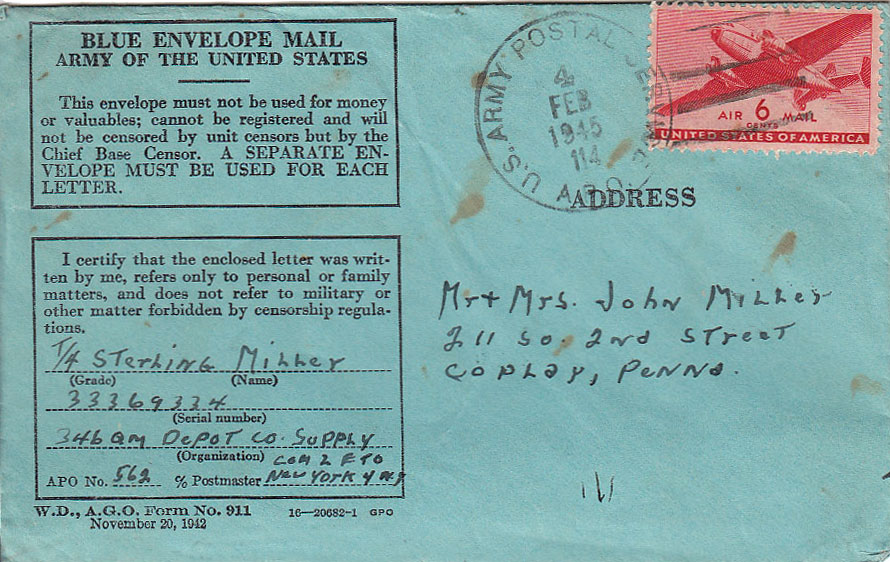 BLUE ENVELOPE MAIL
ARMY OF THE UNITED STATES
This envelope must not be used for money
or valuables; cannot be registered and will
not be censored by unit censors but by the
Chief Base Censor. A SEPARATE EN-
VELOPE MUST BE USED FOR EACH
LETTER.
I certify that the enclosed letter was writ-
ten by me, refers only to personal or family
matters, and does not refer to military or
other matter forbidden by censorship regula-
tions.
T/4 Sterling Miller
(Grade) (Name)
33369334
(Serial number)
346 QM Depot Co. Supply
(Organization) Com Z ETO
APO No. 562 % Postmaster New York 4 N.Y
W.D., A.G.O. Form No. 911 16—20682-1 GPO
November 20, 1942
U.S. ARMY POSTAL SERVICE A.P.O.
4
FEB
1945
114
AIR 6 MAIL
CENTS
UNITED STATES OF AMERICA
ADDRESS
Mr + Mrs. John Miller
211 So. 2nd Street
Coplay, Penna.